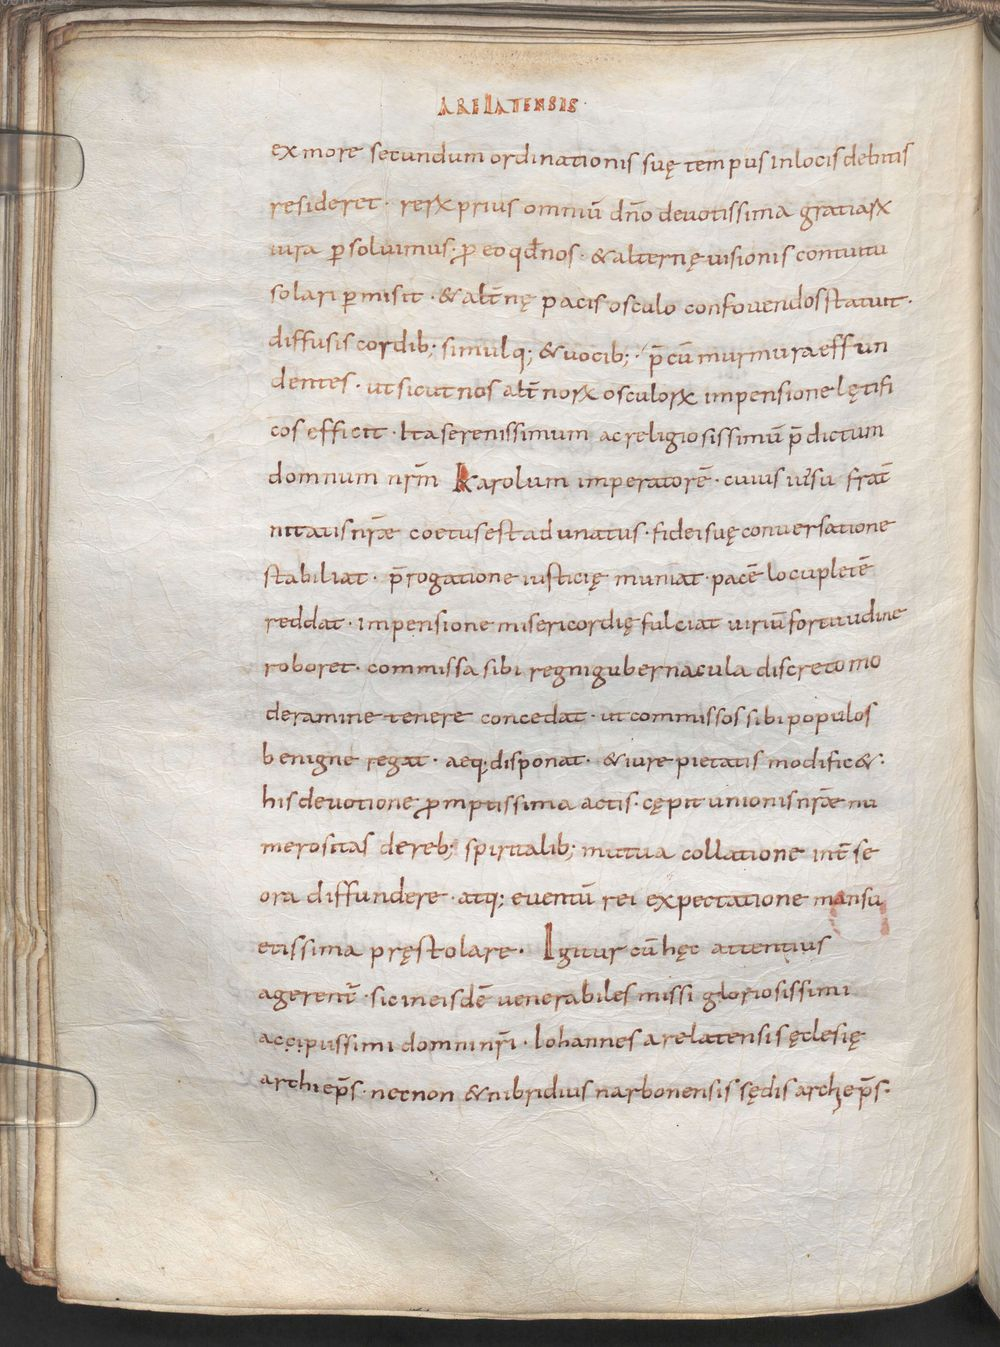 ARELATENSIS
ex more secundum ordinationis suę tempus in locis debitis
resideret · rerꝝ prius omniū dño devotissima gratiaꝝ
iura ꝑsolvimus · ꝓ eo qđ nos · & alternę visionis contuitu
solari ꝑmisit · & alt̄nę pacis osculo confovendos statuit ·
diffusis cordib; simulq; & vocib; · p̄cū murmura effun
dentes · ut sicut nos alt̄norꝝ osculorꝝ impensione lętifi
cos efficit · Ita serenissimum ac religiosissimū p̄dictum
domnum nr̄m Karolum imperatorē · cuius iussu frat̄
nitatis nr̄ae coetus est adunatus · fidei suę conversatione
stabiliat · p̄rogatione iusticię muniat · pacē locupletē
reddat · impensione misericordię fulciat viriū fortitudine
roboret · commissa sibi regni gubernacula discreto mo
deramine tenere concedat · ut commissos sibi populos
benigne regat · aeq; disponat · & iure pietatis modific&:
his devotione ꝓmptissima actis · cępit unionis nr̄ae nu
merositas de reb; spiritalib; mutua collatione int̄ se
ora diffundere · atq; eventū rei expectatione mansu
etissima pręstolare · Igitur cū hęc attentius
agerent̄ · sic in eisdē venerabiles missi gloriosissimi
ac piissimi domni nr̄i · Iohannes arelatensis ęclesię
archiep̄s · necnon & nibridius narbonensis sędis archiep̄s ·